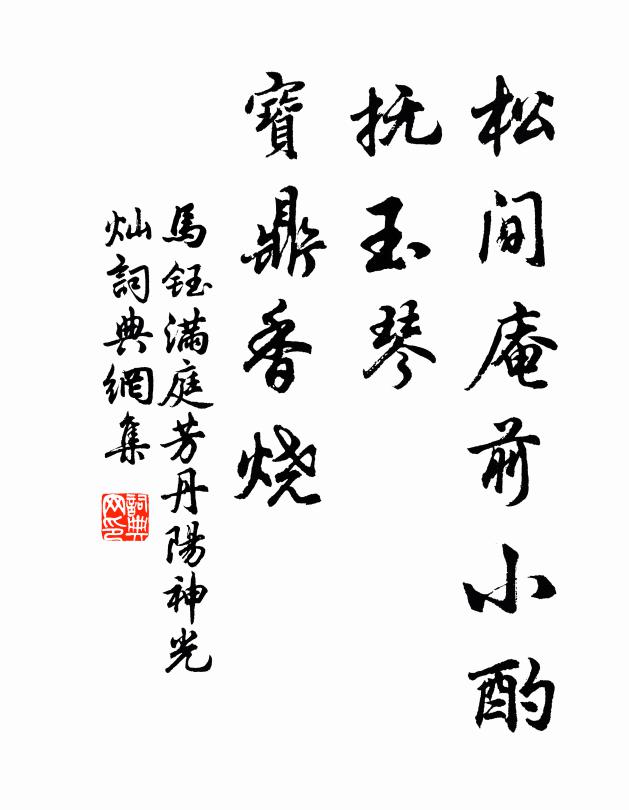 松间庵前小酌
抚玉琴
寶鼎香烧
馬鈺满庭芳丹陽神光
灿詞典網集
詞典
网印